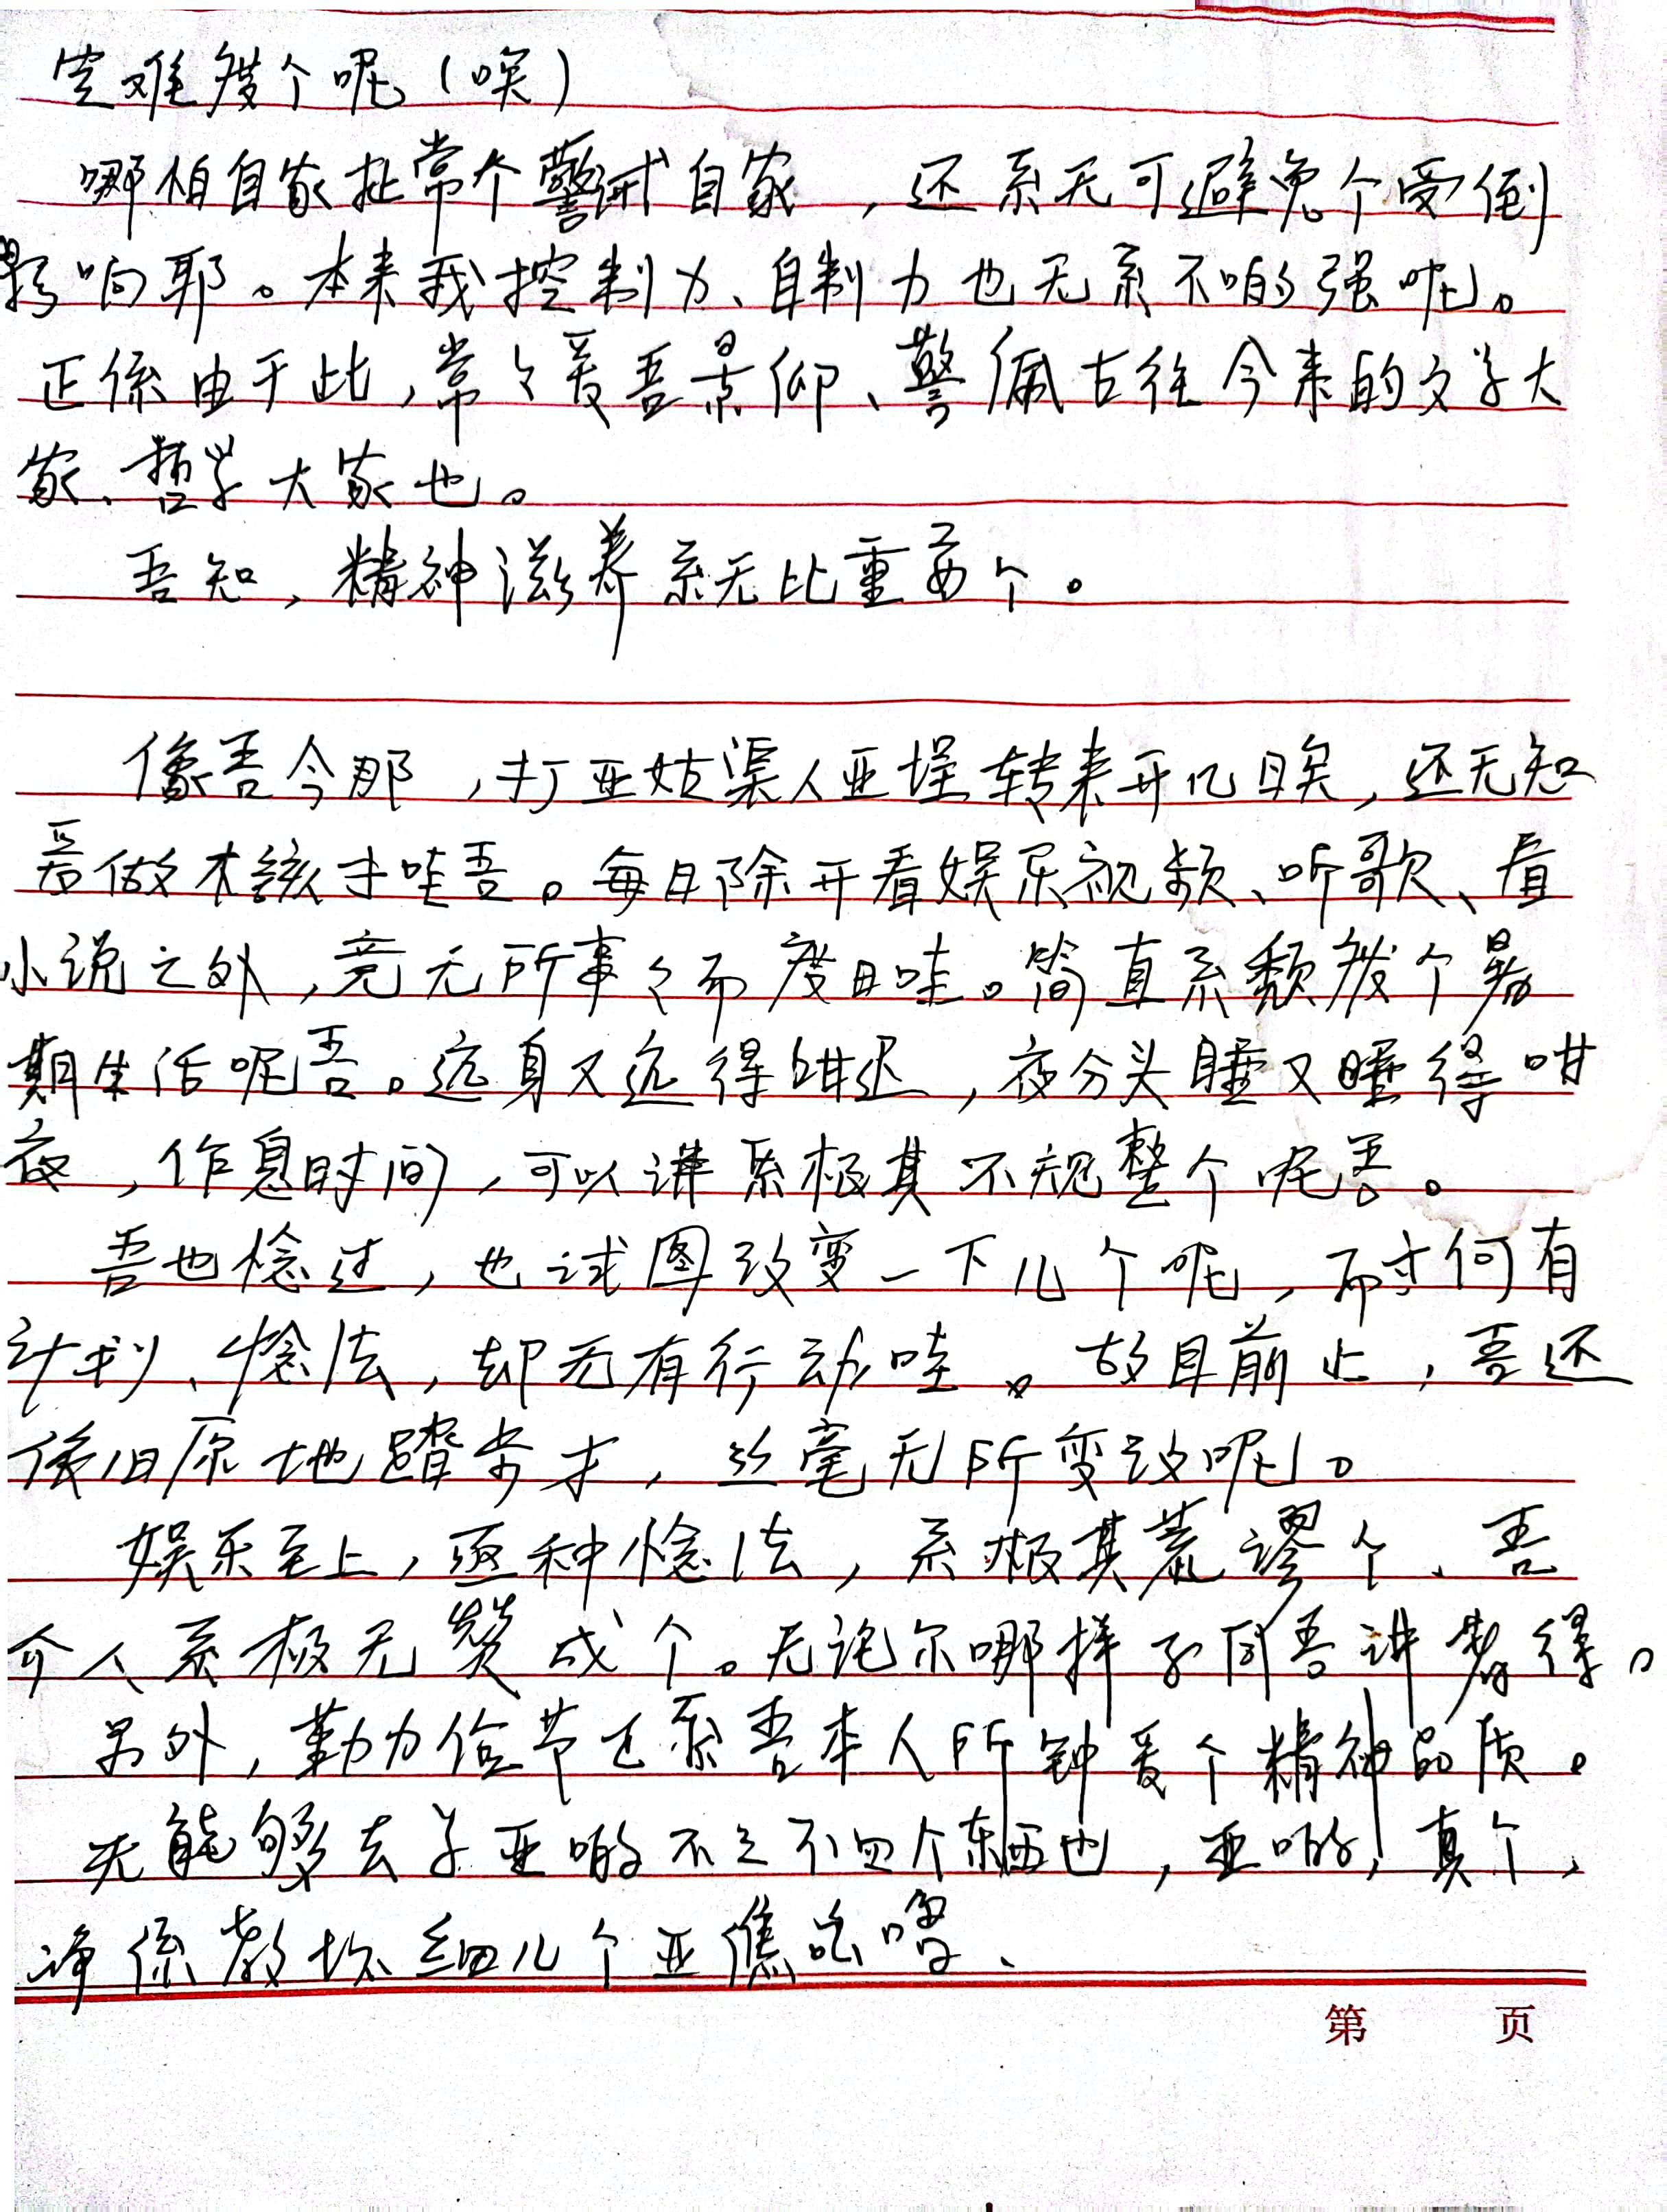 难度个呢（唉）
哪怕自家扯常个警诫自家，还系无可避免个受倒
影响耶。本来我控制力、自制力也无系不啲的强呢。
正係由于此，常々爱吾景仰、警佩古往今来的文学大
家、哲学大家也。
吾知，精神滋养系无比重要个。
像吾今那，打亚姑渠人亚埕转来开几日矣，还无知
爱做木該才哇吾。每日除开看娱乐视频、听歌、看
小说之外，竟无所事々而度日哇。简直系颓废个暑
期生活呢吾。远身又远得咁迟，夜分头睡又睡得咁
夜，作息时间，可以讲系极其不规整个呢吾。
吾也惗过，也试图改变一下儿个呢，而才何有
计划、惗法，却无有行动哇。故目前止，吾还
係旧原地踏步才，丝毫无所变改呢。
娱乐至上，这种惗法，系极其荒谬个、吾
个人系极无赞成个。无论尔哪样子同吾讲都得。
另外，勤力俭节还系吾本人所钟爱个精神品质。
无能够去学亚啲不三不四个东西也，亚啲，真个，
净係教坏细儿个亚
第 页